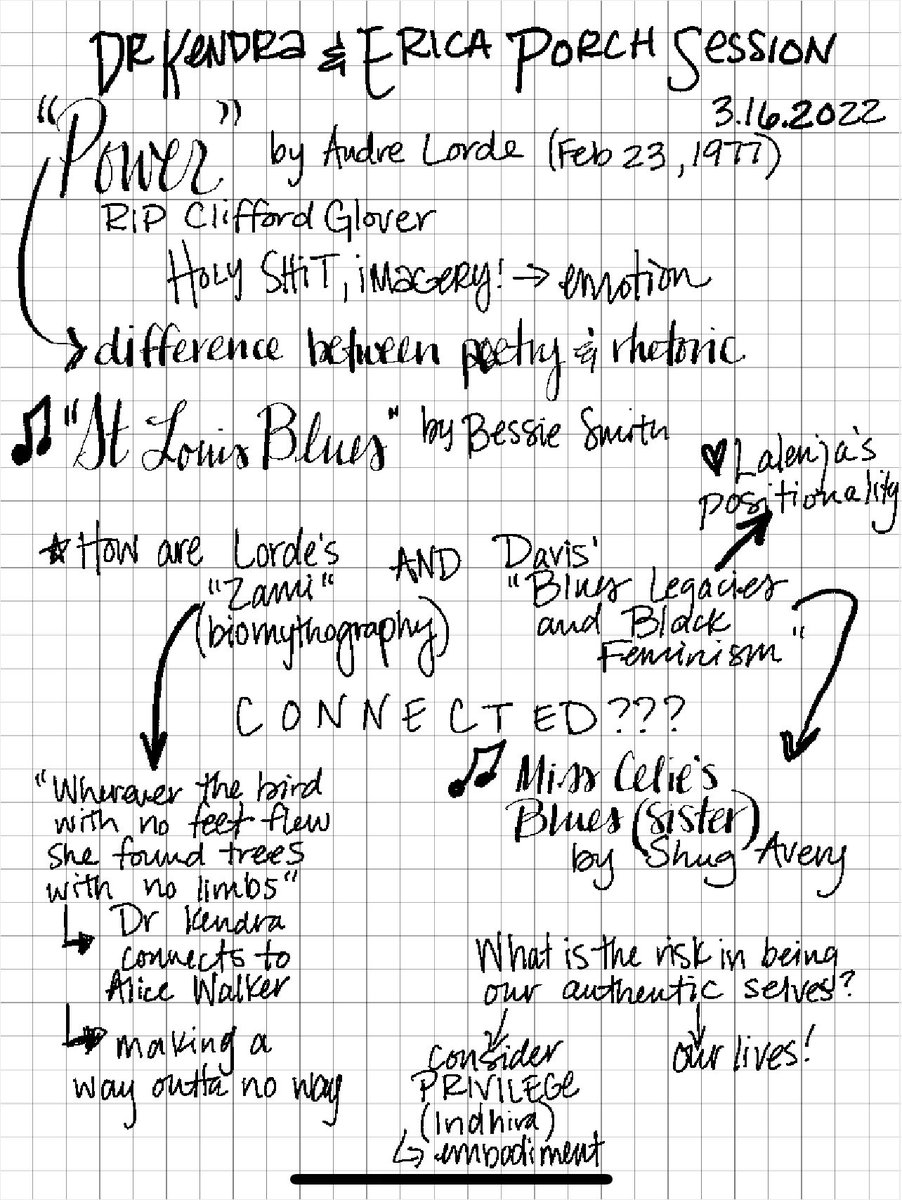 DR KENDRA & ERICA PORCH SESSION
3.16.2022
"Power" by Audre Lorde (Feb 23, 1977)
RIP Clifford Glover
HOLY SHIT, IMAGERY! → emotion
difference between poetry & rhetoric
"St Louis Blues" by Bessie Smith
♥ Lalenja's
positionality
☆ How are Lorde's AND Davis'
"Zami" "Blues Legacies
(biomythography) and Black
Feminism"
CONNECTED???
"Wherever the bird
with no feet flew
she found trees
with no limbs"
↳ Dr Kendra
connects to
Alice Walker
↳ making a
way outta no way
Miss Celie's
Blues (Sister)
by Shug Avery
What is the risk in being
our authentic selves?
consider
PRIVILEGE
(Indhira)
↳ embodiment
our lives!